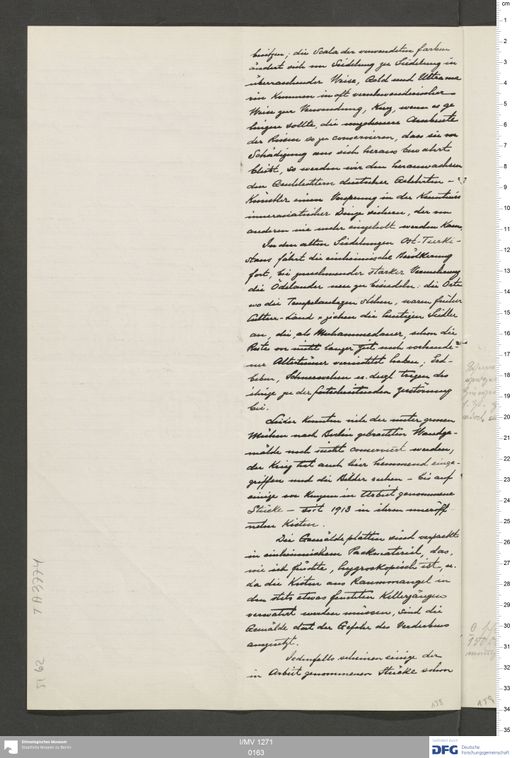 besitzen; die Scala der verwendeten Farben
ändert sich von Siedelung zu Siedelung in
überraschender Weise, Gold und Ultrama
rin kommen in oft verschwenderischer
Weise zur Verwendung, Kurz, wenn es ge
lingen sollte, die ungeheuere Ausbeute
der Reisen so zu conservieren, dass sie vor
Schädigung aus sich heraus bewahrt
bleibt, so werden wir den heranwachsen
den Geschlechtern deutscher Gelehrten -
Künstler einen Vorsprung in der Kenntniss
innerasiatischer Dinge sichern, der von
anderen nie mehr eingeholt werden kann.
In den alten Siedelungen Ost-Turki-
stans fährt die einheimische Bevölkerung
fort, bei zunehmender starker Vermehrung
die Ödländer neu zu besiedeln. die Orte
wo die Tempelanlagen stehen, waren früher
Cultur-Land & ziehen die heutigen Siedler
an, die, als Muhammedaner, schon die
Reste vor nicht langer Zeit noch vorhande-
ner Altertümer vernichtet haben, Erd-
beben, Schneewehen u. dergl. tragen das
ihrige zu der fortschreitenden Zerstörung
bei.
Leider konnten viele der unter grossen
Mühen nach Berlin gebrachten Wandge-
mälde noch nicht conserviert werden,
der Krieg hat auch hier hemmend einge-
griffen und die Bilder ruhen - bis auf
einige vor Kurzem in Arbeit genommene
Stücke - seit 1913 in ihren uneröff
neten Kisten.
Die Gemäldeplatten sind verpackt
in einheimischem Packmaterial, das,
wie ich fürchte, hygroskopisch ist, u.
da die Kisten aus Raummangel in
den stets etwas feuchten Kellergängen
verwahrt werden müssen, sind die
Gemälde dort der Gefahr des Verderbens
ausgesetzt.
Jedenfalls scheinen einige der
in Arbeit genommenen Stücke schon
158
159
I/MV 1271
0163
Ethnologisches Museum
Staatliche Museen zu Berlin
DFG
Deutsche
Forschungsgemeinschaft